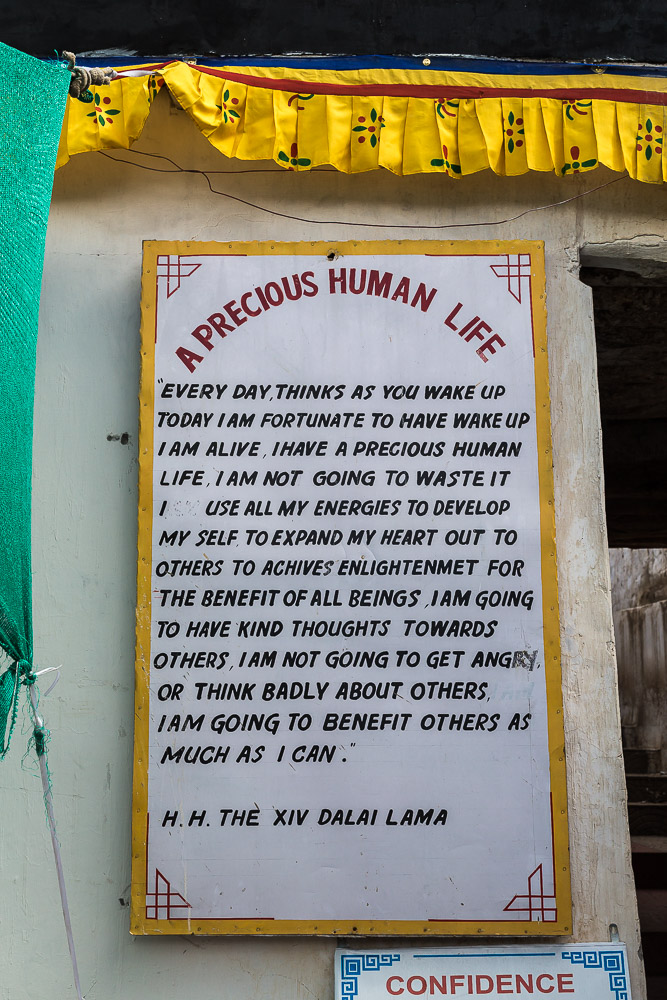 A PRECIOUS HUMAN LIFE
"EVERY DAY, THINKS AS YOU WAKE UP
TODAY I AM FORTUNATE TO HAVE WAKE UP
I AM ALIVE, I HAVE A PRECIOUS HUMAN
LIFE, I AM NOT GOING TO WASTE IT
I USE ALL MY ENERGIES TO DEVELOP
MY SELF TO EXPAND MY HEART OUT TO
OTHERS TO ACHIVES ENLIGHTENMET FOR
THE BENEFIT OF ALL BEINGS, I AM GOING
TO HAVE KIND THOUGHTS TOWARDS
OTHERS, I AM NOT GOING TO GET ANGRY,
OR THINK BADLY ABOUT OTHERS,
I AM GOING TO BENEFIT OTHERS AS
MUCH AS I CAN."
H.H. THE XIV DALAI LAMA
CONFIDENCE